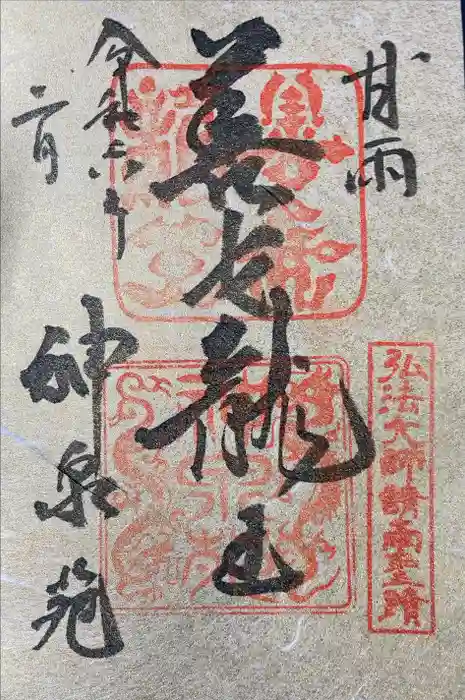 甘雨
弘法大師請雨聖蹟
善女龍王
令和六年
二月
神泉苑